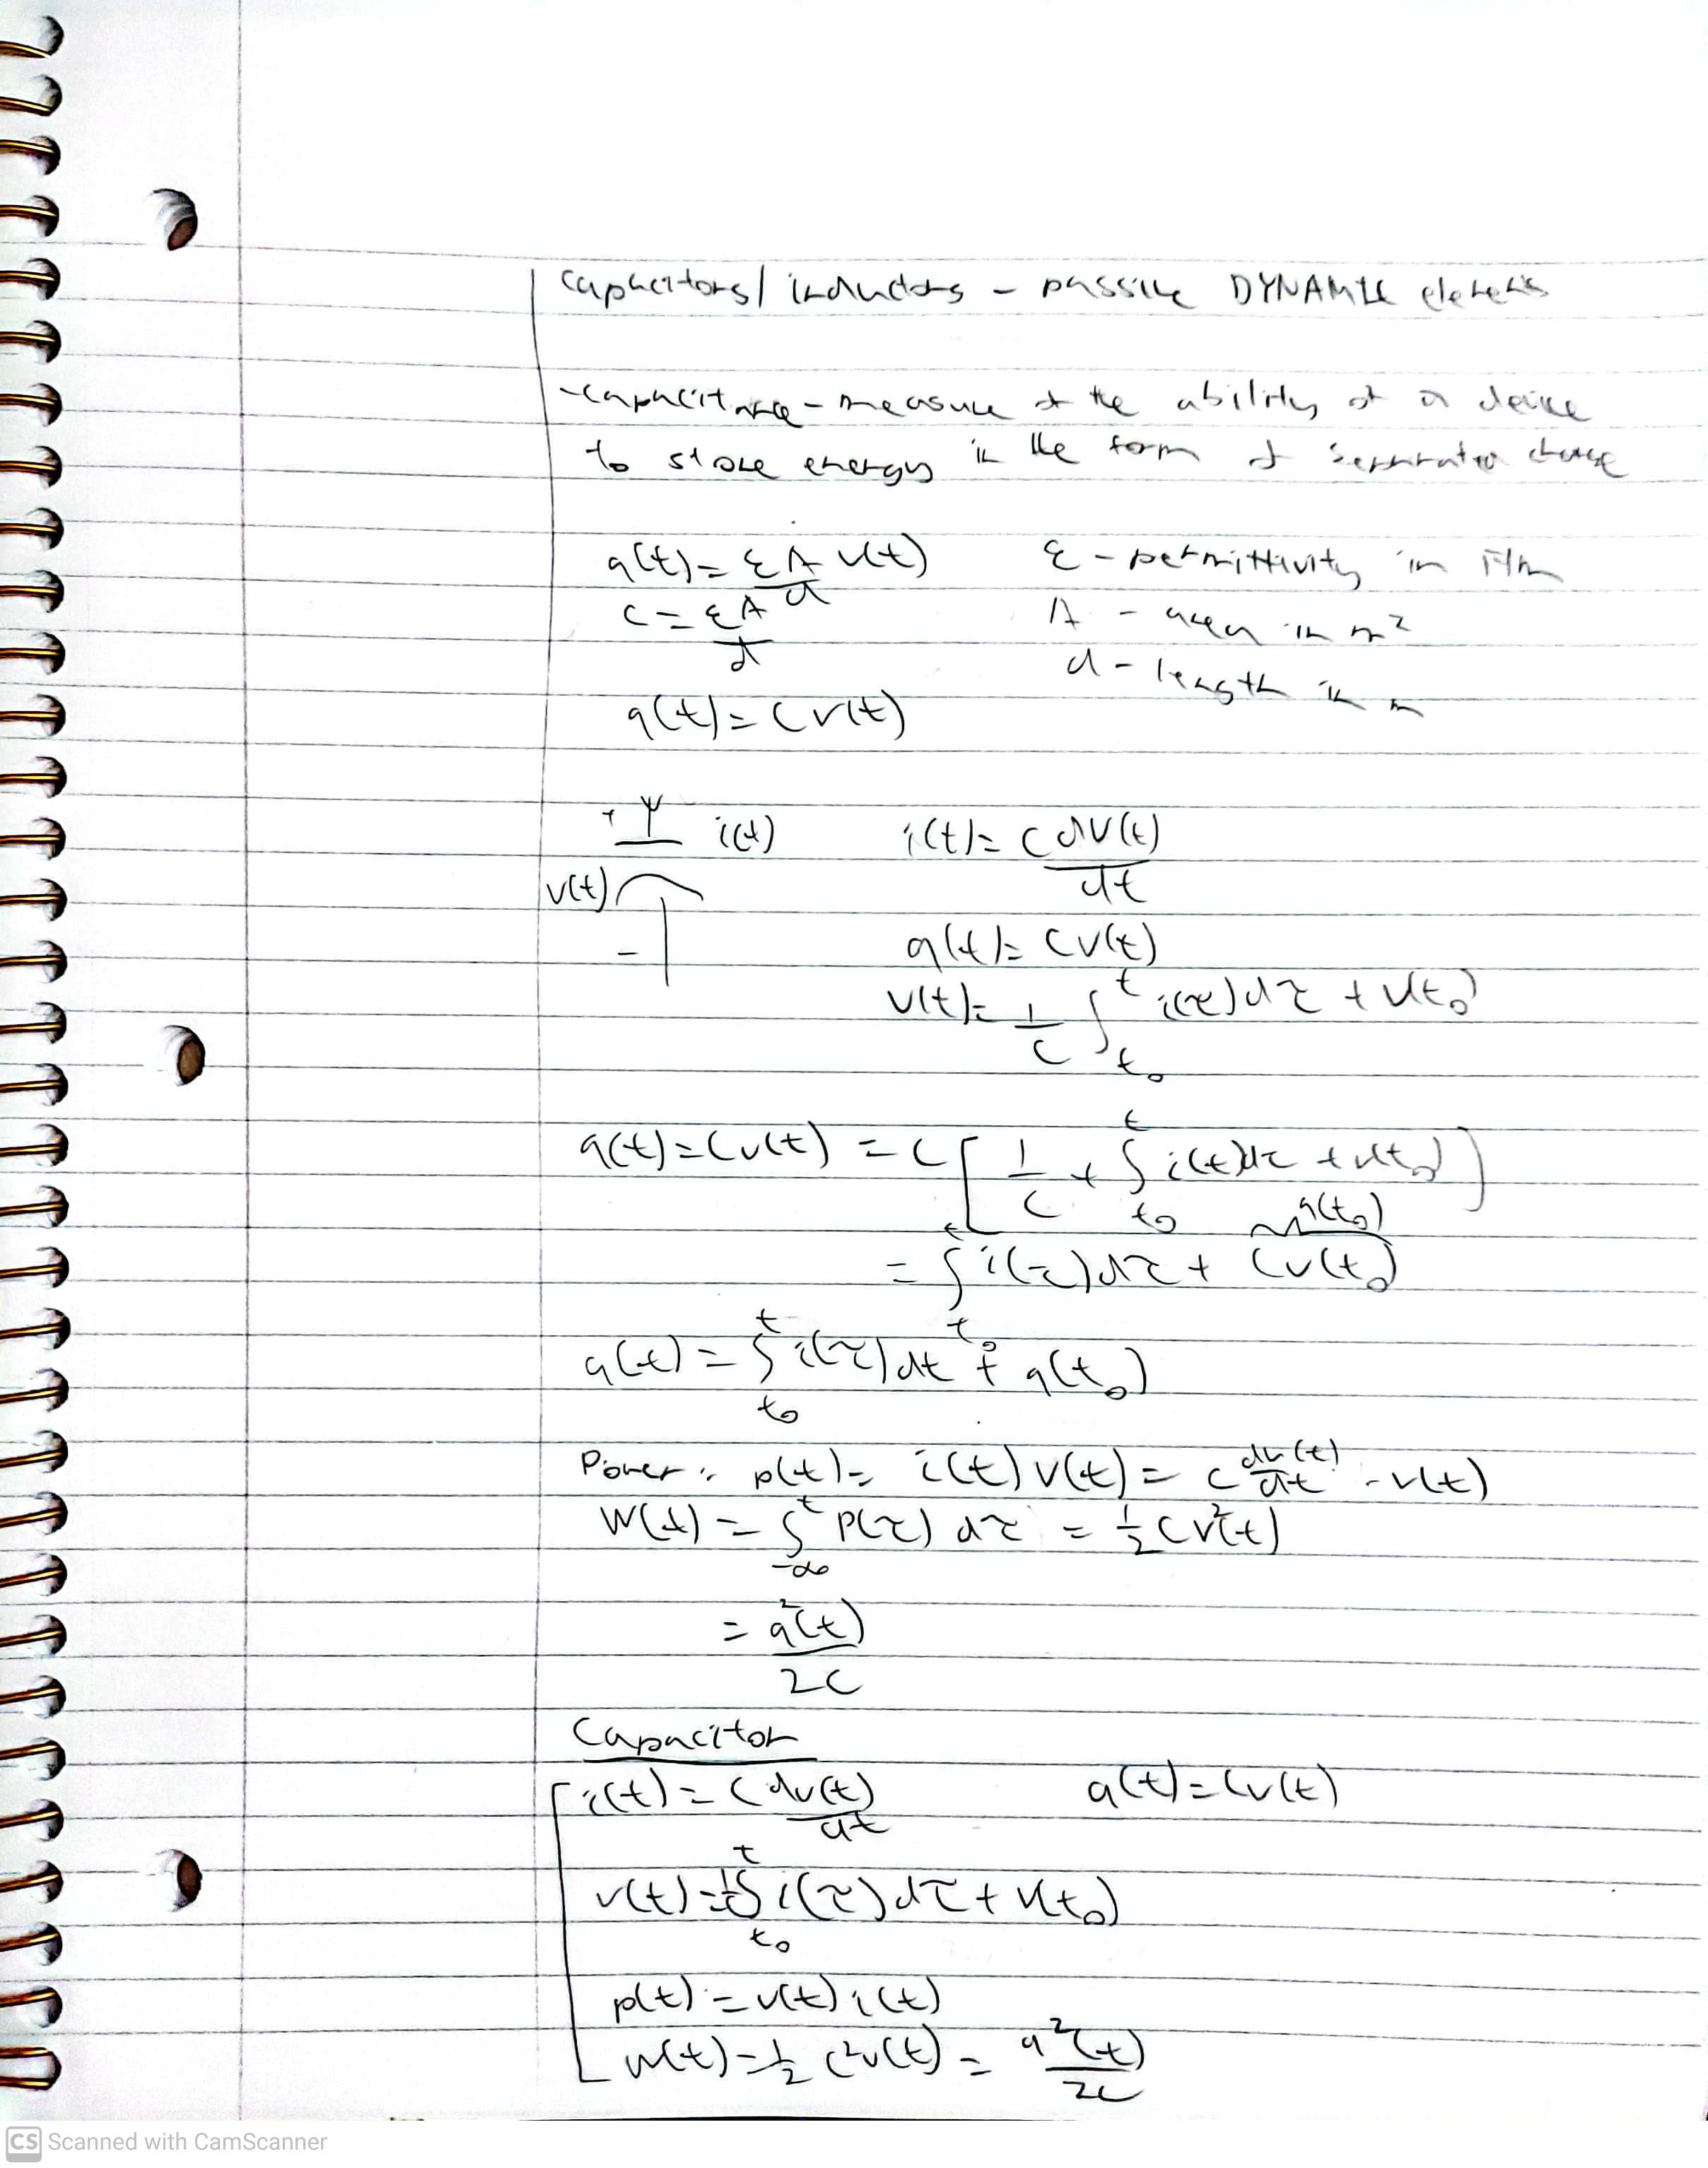 capacitors/ inductors - passive DYNAMIC elements
- capacitance - measure of the ability of a device
to store energy in the form of separated charge
q(t) = εA/d v(t)    ε - permittivity in F/m
C = εA/d    A - area in m²
d - length in m
q(t) = Cv(t)
+ i(t)    i(t) = C dv(t)/dt
v(t)
-    q(t) = Cv(t)
v(t) = 1/C ∫_{t₀}^{t} i(τ)dτ + v(t₀)
q(t) = Cv(t) = C[1/C + ∫_{t₀}^{t} i(t)dτ + v(t₀)]
q(t₀)
= ∫_{t₀}^{t} i(τ)dτ + Cv(t₀)
q(t) = ∫_{t₀}^{t} i(τ)dt + q(t₀)
Power: p(t) = i(t) v(t) = C dv(t)/dt · v(t)
W(t) = ∫_{-∞}^{t} P(τ) dτ = ½Cv²(t)
= q²(t)/2C
Capacitor
i(t) = C dv(t)/dt    q(t) = Cv(t)
v(t) = 1/C ∫_{t₀}^{t} i(τ)dτ + v(t₀)
p(t) = v(t) i(t)
w(t) = ½ C²v(t) = q²(t)/2C
CS Scanned with CamScanner